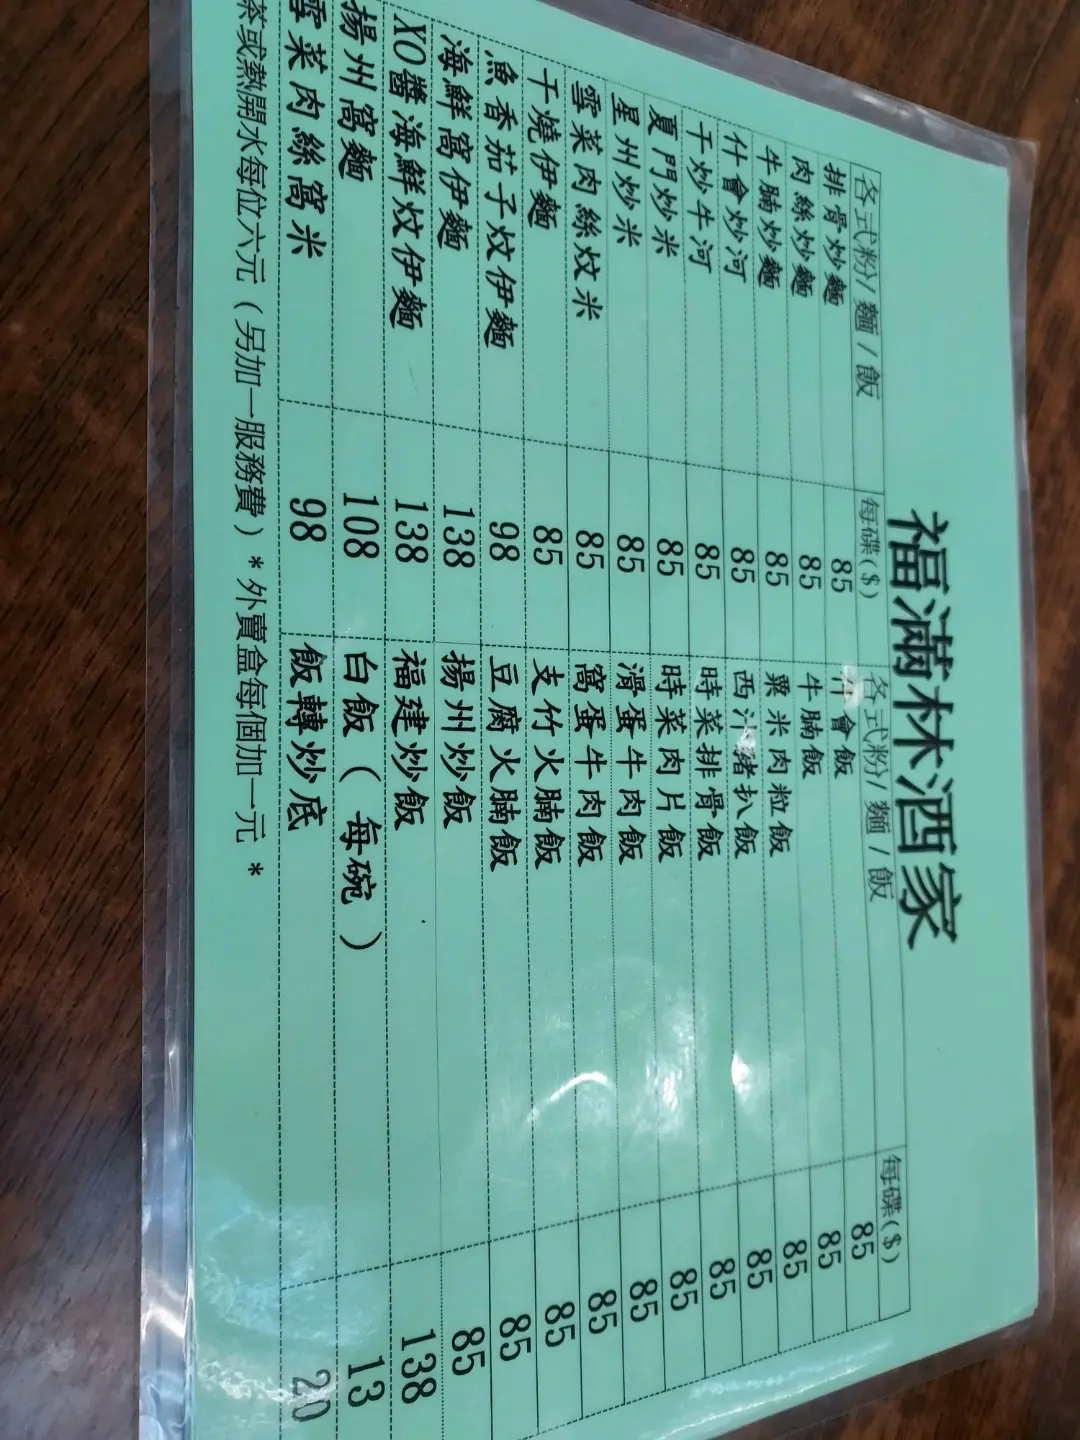 福滿林酒家
各式粉/麵/飯 每碟($) 各式粉/麵/飯 每碟($)
排骨炒麵 85 什會飯 85
肉絲炒麵 85 牛腩飯 85
牛腩炒麵 85 粟米肉粒飯 85
什會炒河 85 西汁豬扒飯 85
干炒牛河 85 時菜排骨飯 85
夏門炒米 85 時菜肉片飯 85
星州炒米 85 滑蛋牛肉飯 85
雪菜肉絲炆米 85 窩蛋牛肉飯 85
干燒伊麵 85 支竹火腩飯 85
魚香茄子炆伊麵 98 豆腐火腩飯 85
海鮮窩伊麵 138 揚州炒飯 85
XO醬海鮮炆伊麵 138 福建炒飯 138
揚州窩麵 108 白飯（每碗） 13
雪菜肉絲窩米 98 飯轉炒底 20
茶或熱開水每位六元（另加一服務費）* 外賣盒每個加一元 *